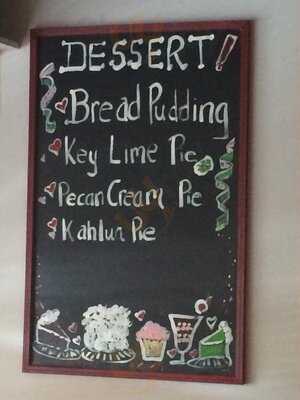 DESSERT!
Bread Pudding
Key Lime Pie
Pecan Cream Pie
Kahlua Pie